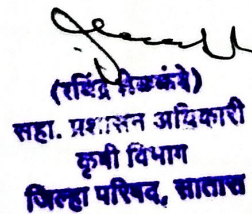 (रविंद्र
सहा. प्रशासन अधिकारी
कृषी विभाग
जिल्हा परिषद, सातारा